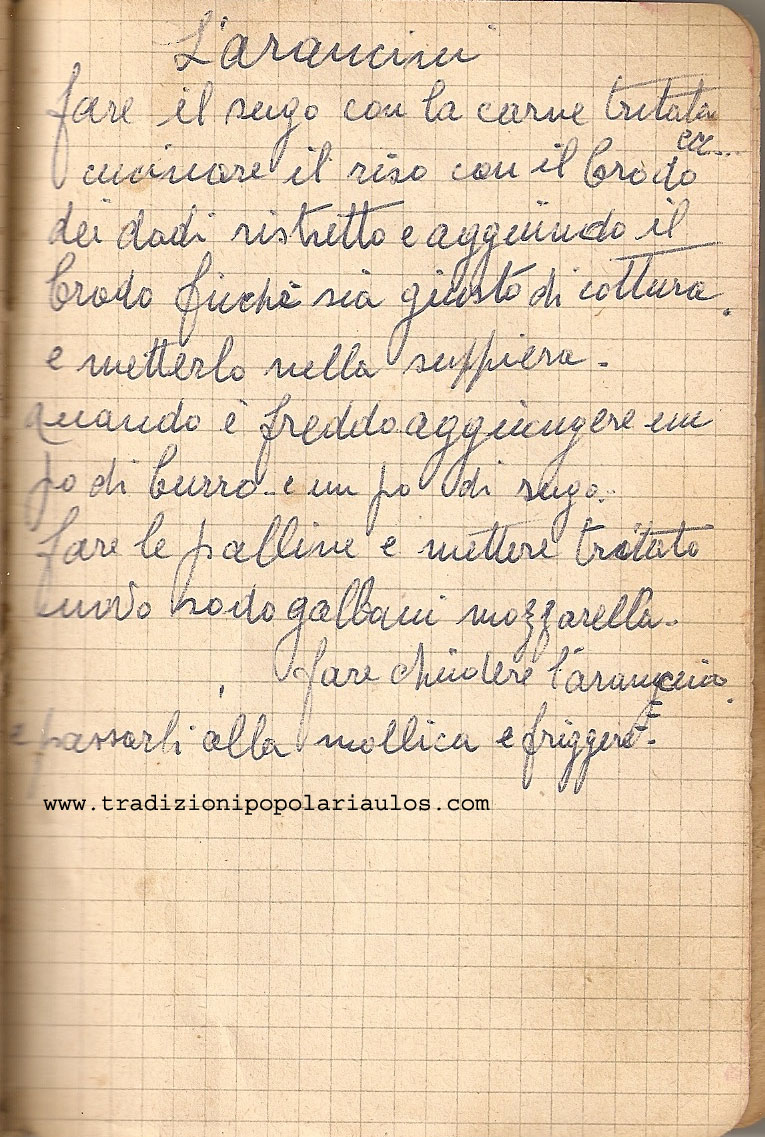 L'arancini
fare il sugo con la carne tritata
ecc...
cucinare il riso con il brodo
dei dadi ristretto e aggiundo il
brodo finchè sia giusto di cottura.
e metterlo nella suppiera.
quando è freddo aggiungere un
po di burro.. e un po di sugo..
fare le palline e mettere tritato
uovo sodo galbani mozzarella.
fare chiudere l'arancino.
e passarli alla mollica e friggere.
www.tradizionipopolariaulos.com